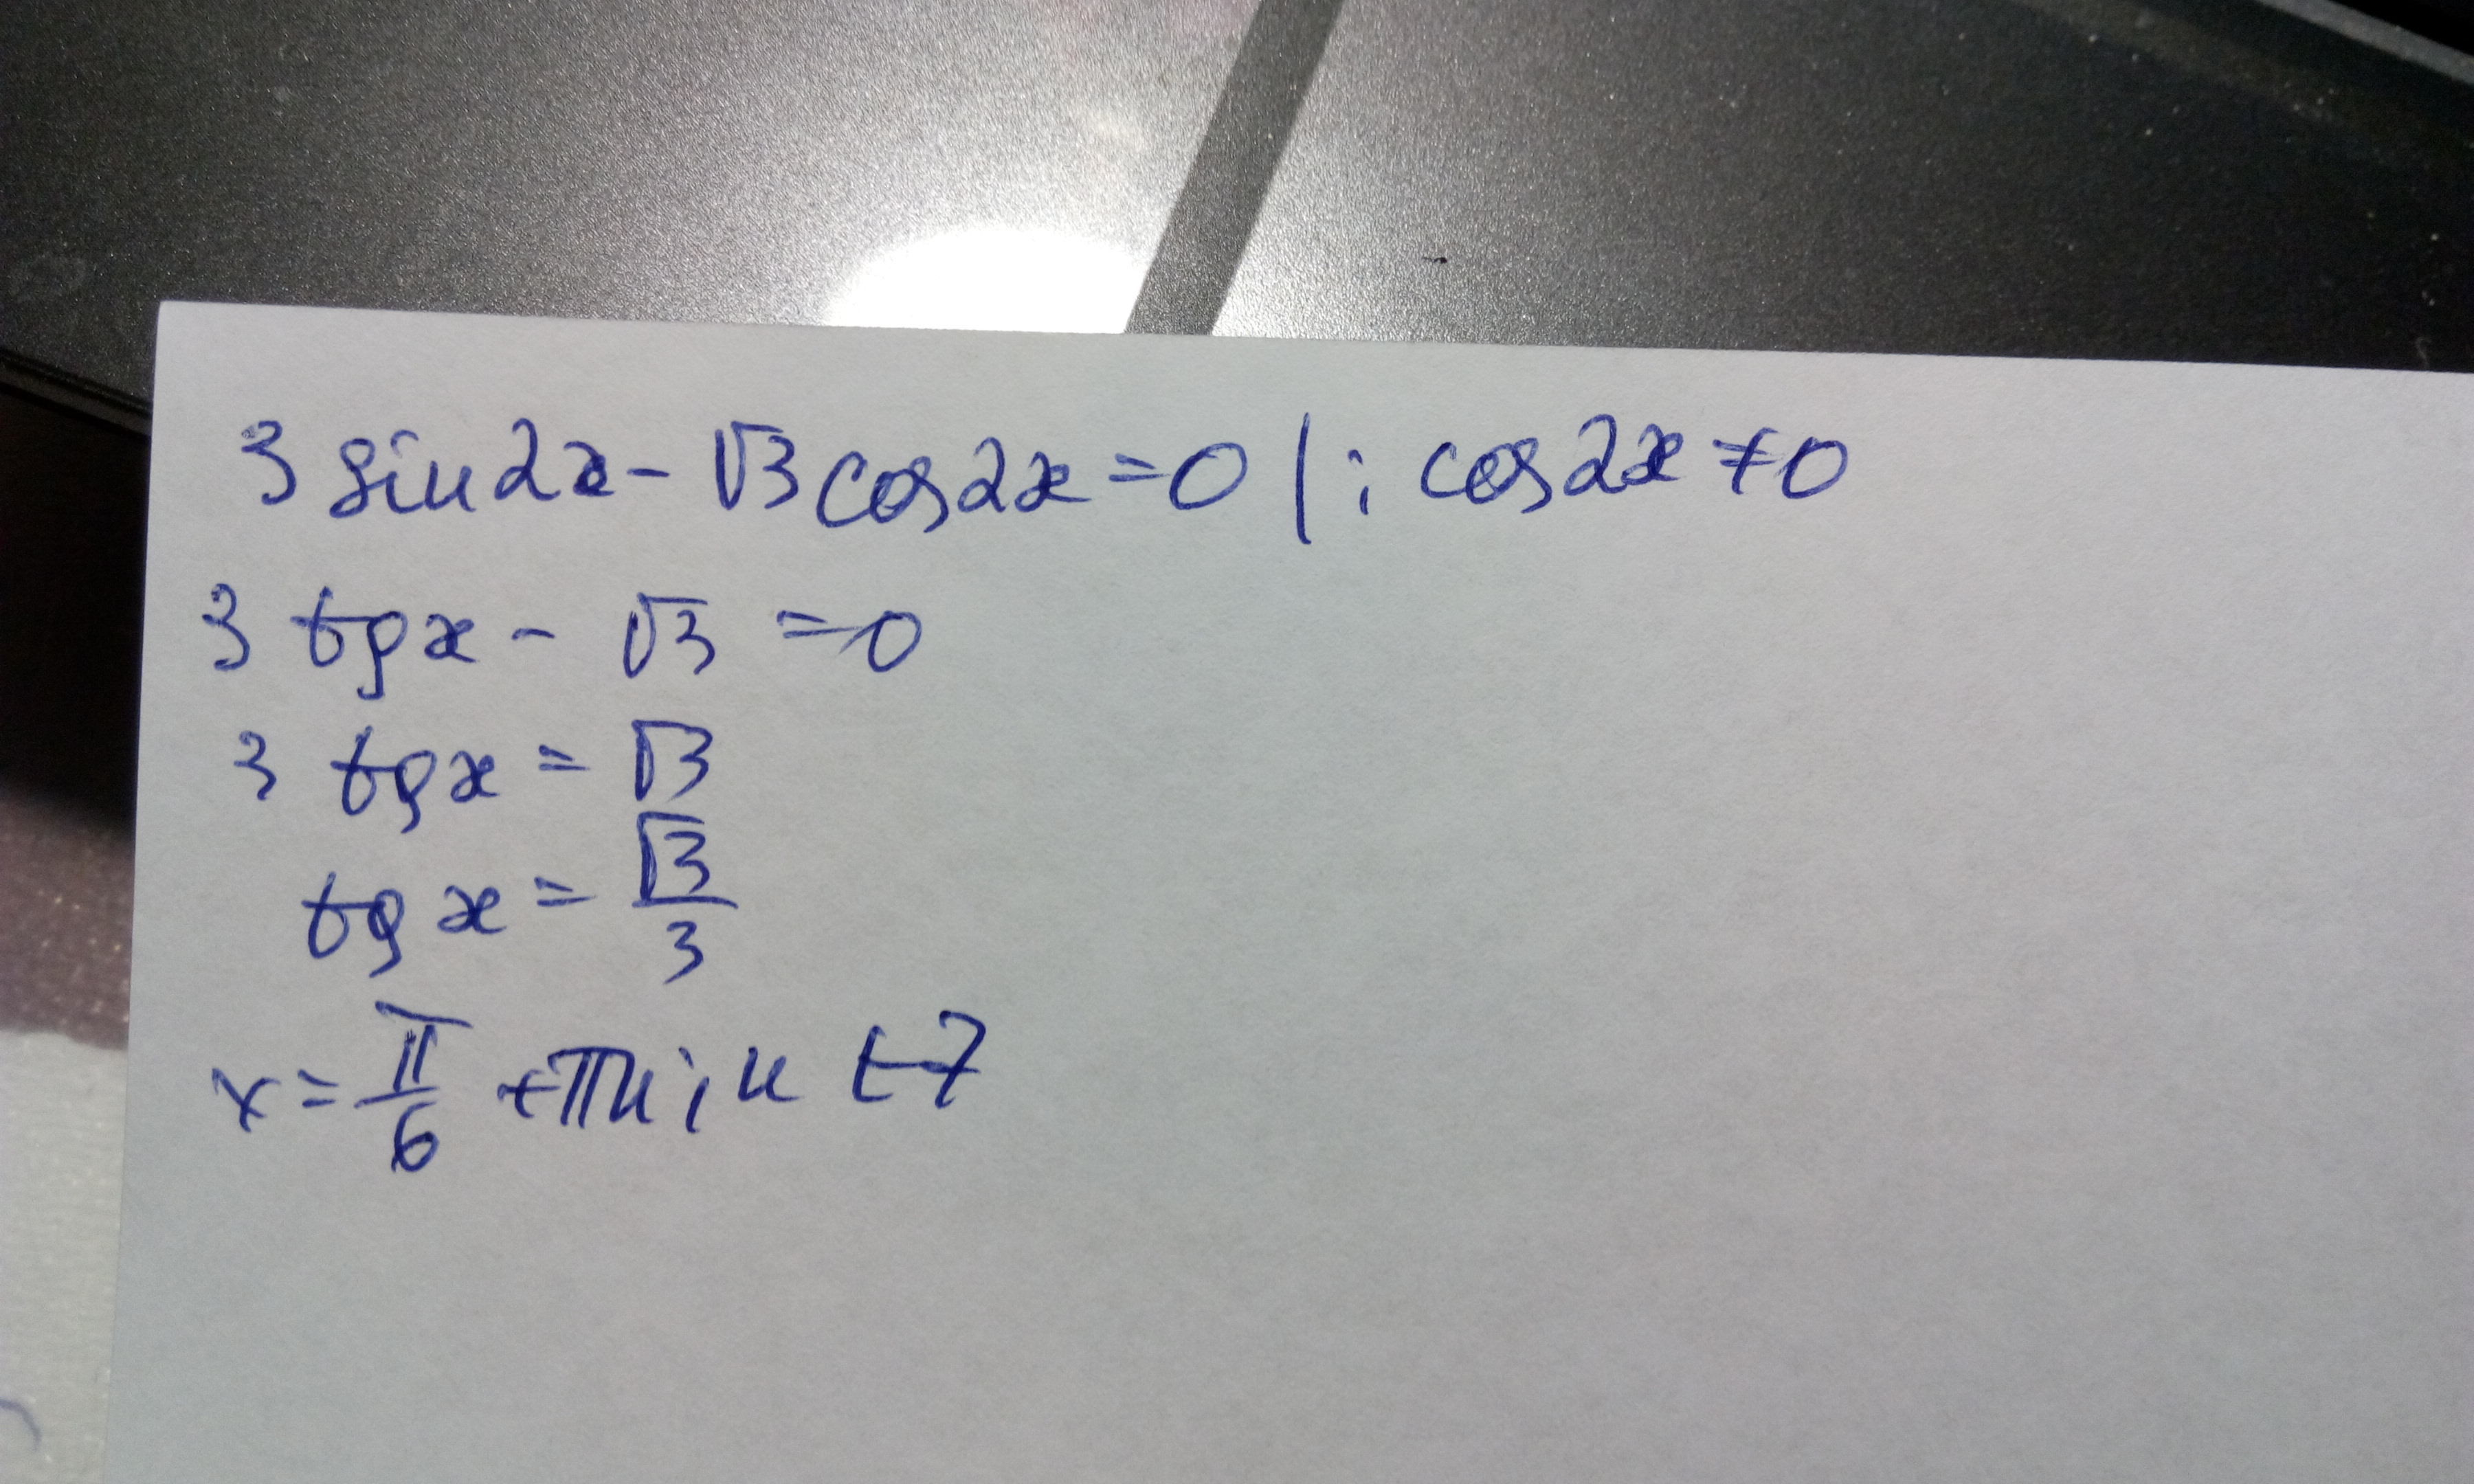 3 sin2x - √3 cos2x = 0 | : cos2x ≠ 0
3 tgx - √3 = 0
3 tgx = √3
tgx = √3/3
x = π/6 + πn; n ∈ Z